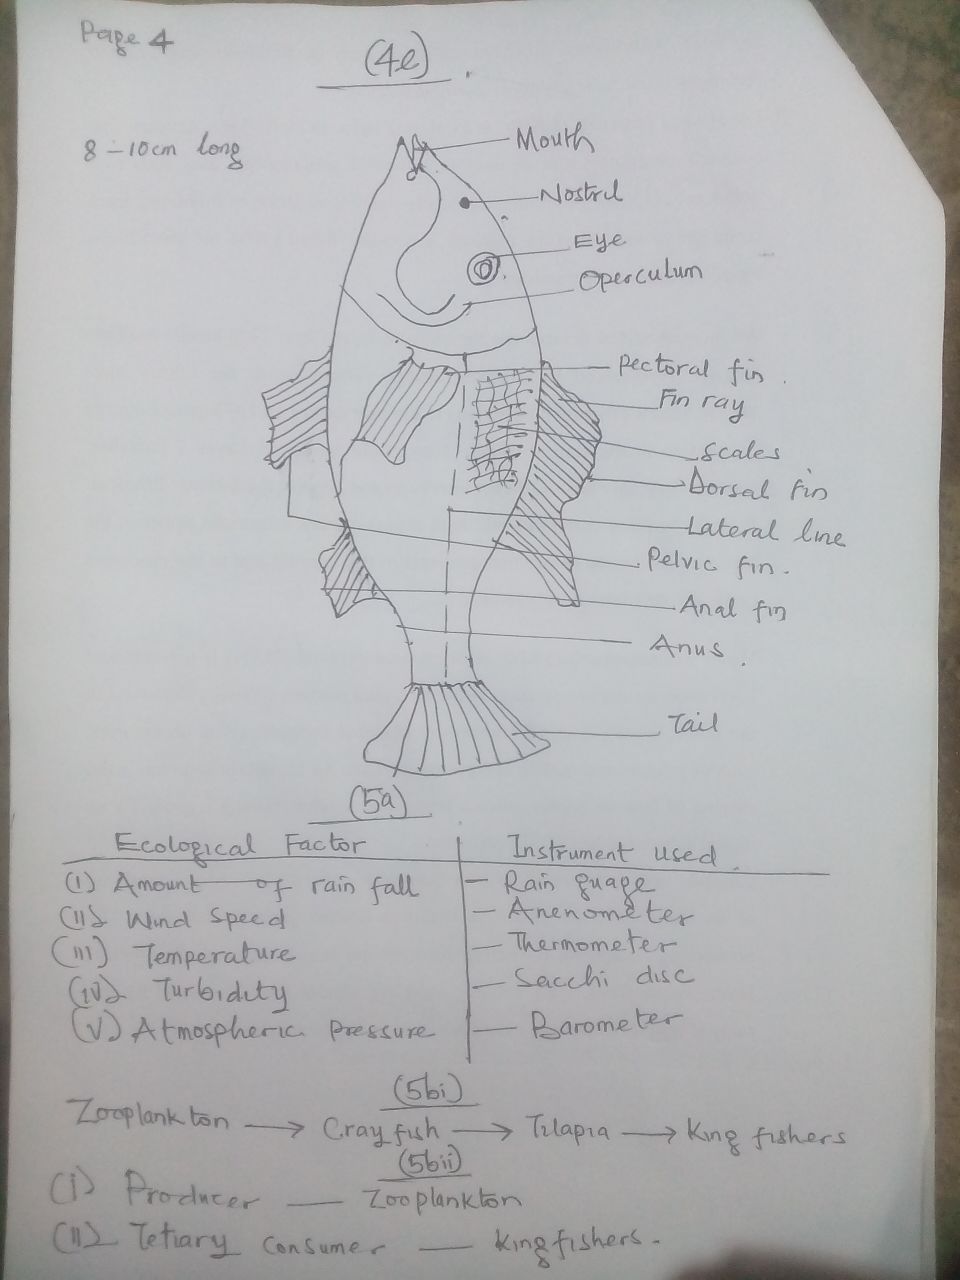 Page 4
(4e)
8 – 10cm long
Mouth
Nostril
Eye
Operculum
Pectoral fin
Fin ray
Scales
Dorsal fin
Lateral line
Pelvic fin.
Anal fin
Anus
Tail
(5a)
Ecological Factor Instrument used
(i) Amount of rain fall – Rain guage
(ii) Wind Speed – Anenometer
(iii) Temperature – Thermometer
(iv) Turbidity – Sacchi disc
(v) Atmospheric pressure – Barometer
(5bi)
Zooplankton → Cray fish → Tilapia → King fishers
(5bii)
(i) Producer – Zooplankton
(ii) Tetiary consumer – King fishers.